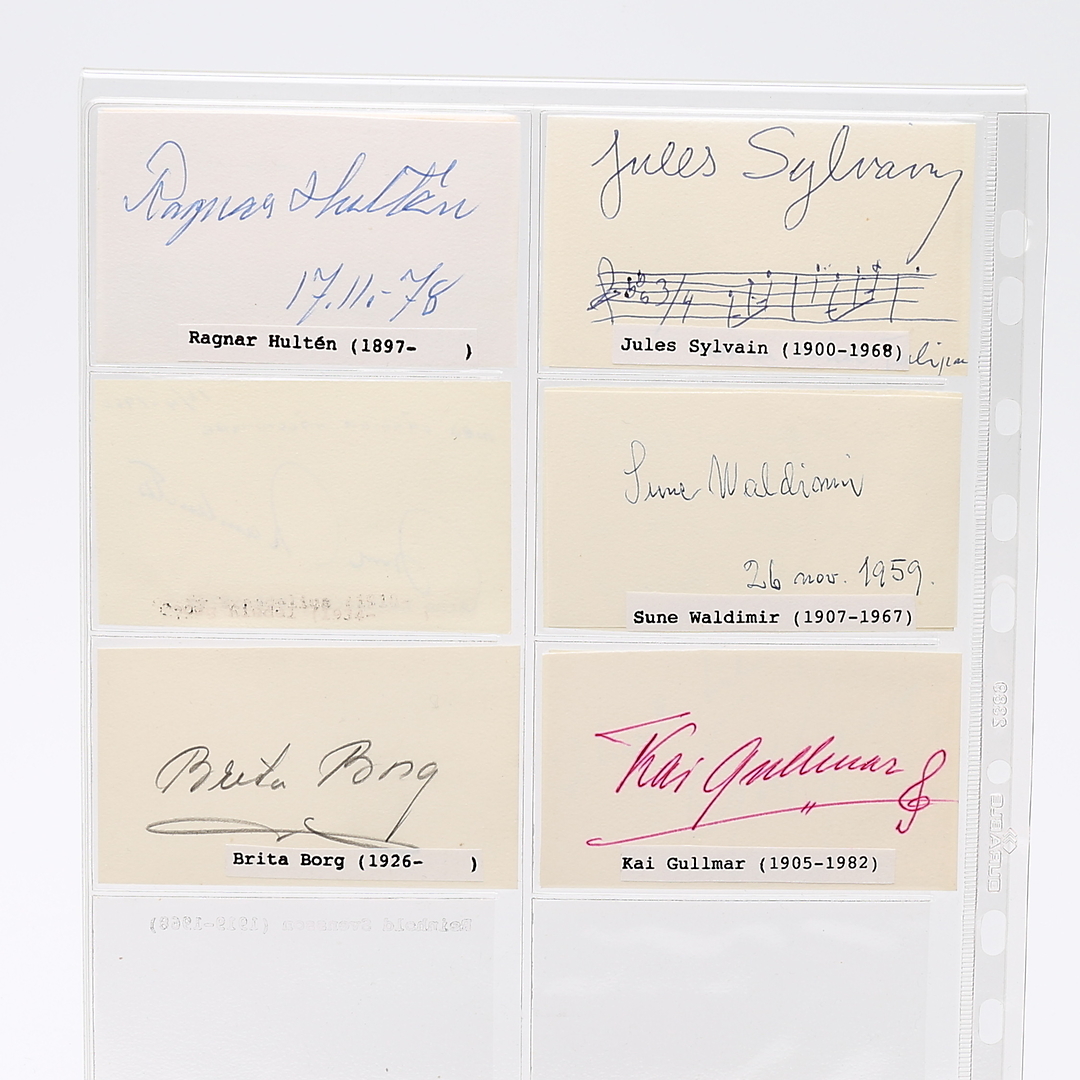 Ragnar Hultén
17.11.-78
Ragnar Hultén (1897-     )
Jules Sylvain
3/4
Jules Sylvain (1900-1968)
Sune Waldimir
26 nov. 1959.
Sune Waldimir (1907-1967)
Brita Borg
Brita Borg (1926-     )
Kai Gullmar
Kai Gullmar (1905-1982)
Reinhold Svensson (1919-1968)